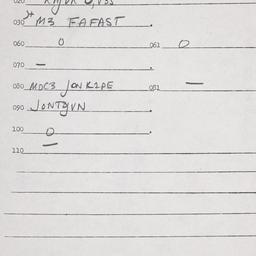 020
030 M3 FAFAST
060 0 061 0
070 —
080 MDC3 JONK2PE 081 —
090 JONTGVN
100 0
110 —